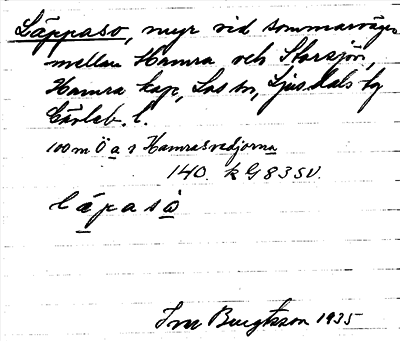 Läppaso, myr vid sommarvägen
mellan Hamra och Storsjön,
Hamra kap, Los sn, Ljusdals tg
Gävleb. l.
100 m Ö a 2 Hamrasvedjorna
140. k G 83 SV.
läpasò
Bengtsson 1935